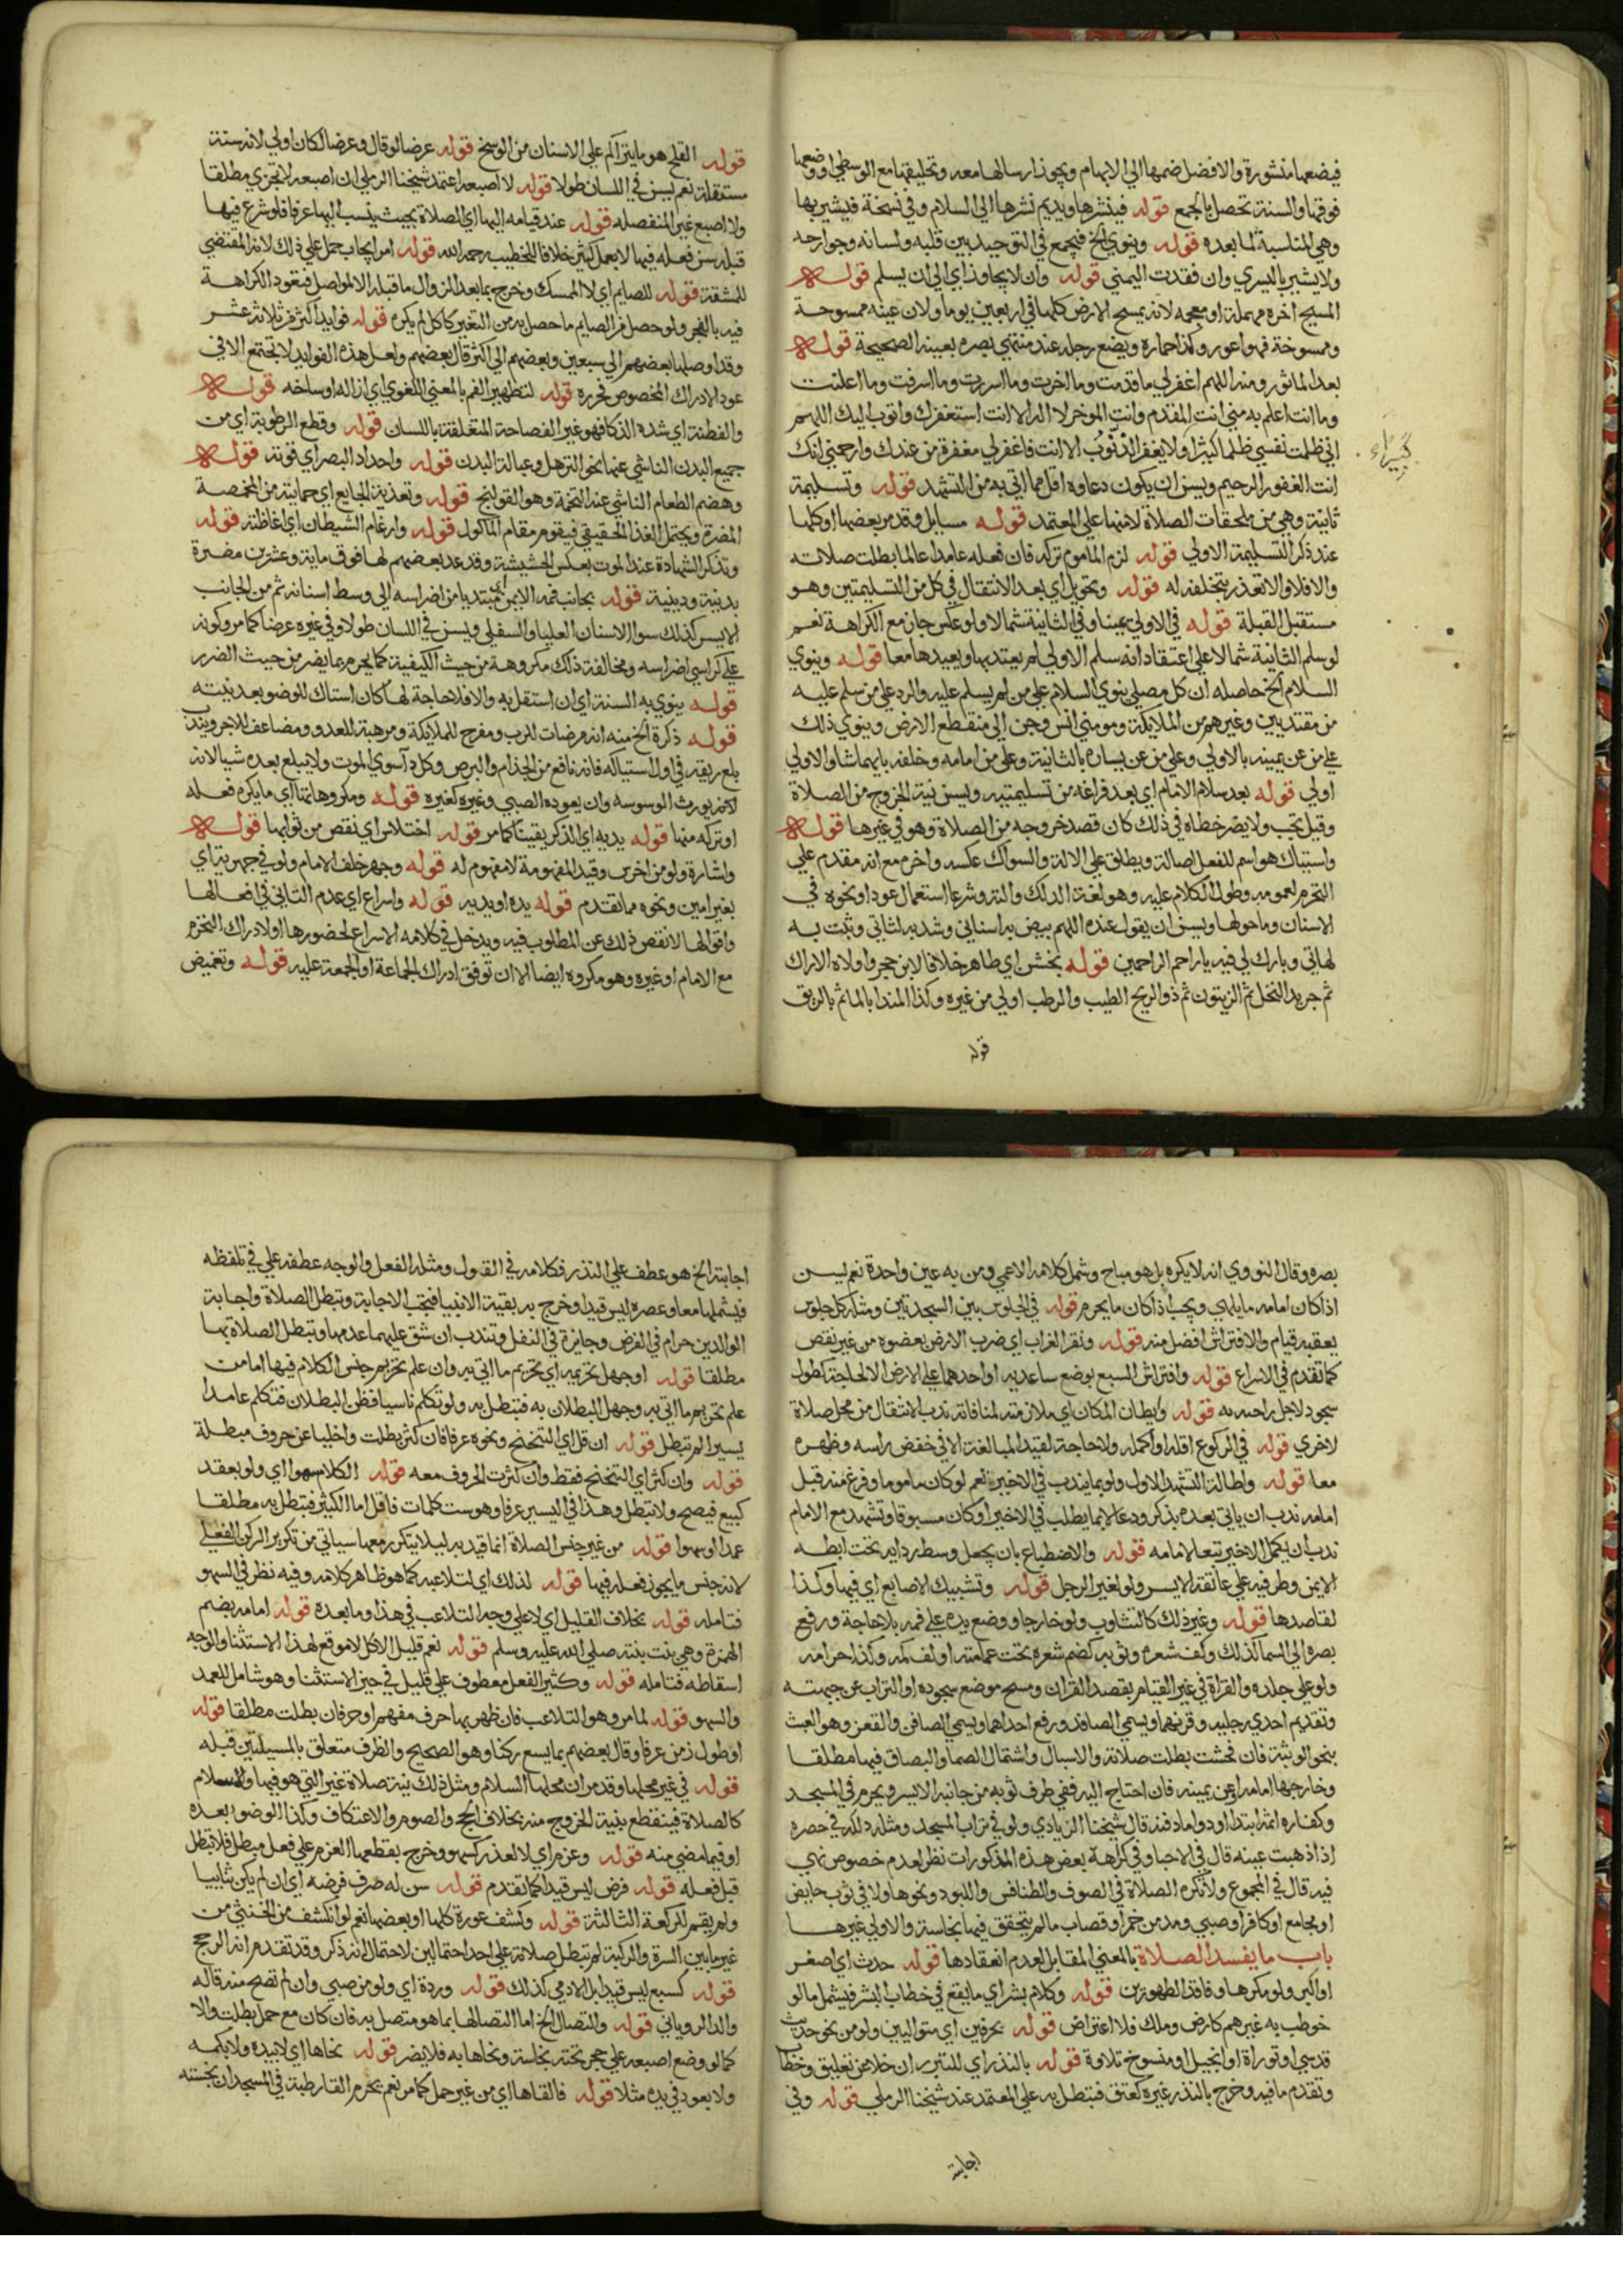 فيضعها منشورة والافضل ضمها الي الابهام ويجوز ارسالها معه وتحليقها مع الوسطي او وضعها
فوقها والسنة تحصل بالجمع قوله فينشرها ويديم نشرها الي السلام وفي نسخة فيشير بها
وهي المناسبة لما بعده قوله وينوي الخ فيجمع في التوحيد بين قلبه ولسانه وجوارحه
ولا يشير باليسري وان فقدت اليمني قوله وان لا يجاوز اي الي ان يسلم قوله
المسيح اخره مهملة او معجمه لانه يمسح الارض كلها في اربعين يوما ولان عينه ممسوحة
وممسوخة فهو اعور وكذا حماره ويضع رجله عند منتهي بصره بعينه الصحيحة قوله
بعد الماثور ومنه اللهم اغفر لي ما قدمت وما اخرت وما اسررت وما اسرفت وما اعلنت
وما انت اعلم به مني انت المقدم وانت الموخر لا اله الا انت استغفرك واتوب اليك اللهم
اني ظلمت نفسي ظلما كثيرا ولا يغفر الذنوب الا انت فاغفر لي مغفرة من عندك وارحمني انك
كبيرا
انت الغفور الرحيم ويسن ان يكون دعاوه اقل مما اتي به من التشهد قوله وتسليمة
ثانية وهي من ملحقات الصلاة لا منها علي المعتمد قوله مسايل وقد مر بعضها او كلها
عند ذكر التسليمة الاولي قوله لزم الماموم تركه فان فعله عامدا عالما بطلت صلاته
والا فلا والا تعذر بتخلفه له قوله وتحويل اي بعد الانتقال في كل من التسليمتين وهو
مستقبل القبلة قوله في الاولي يمينا وفي الثانية شمالا ولو عكس جاز مع الكراهة نعم
لو سلم الثانية شمالا علي اعتقاد انه سلم الاولي لم يعتد بها ويعيدها معا قوله وينوي
السلام الخ حاصله ان كل مصلي ينوي السلام علي من لم يسلم عليه والرد علي من سلم عليه
من مقتديين وغيرهم من الملايكة ومومني انس وجن الي منقطع الارض وينوي ذلك
علي من عن يمينه بالاولي وعلي من عن يساره بالثانية وعلي من امامه وخلفه بايهما شا والاولي
اولي قوله بعد سلام الامام اي بعد فراغه من تسليمتيه ويسن نية الخروج من الصلاة
وقيل تجب ولا يضر خطاه في ذلك كان قصد خروجه من الصلاة وهو في غيرها قوله
واستياك هو اسم للفعل اصالة ويطلق علي الالة والسواك عكسه واخره مع انه مقدم علي
التحرم لعمومه وطول الكلام عليه وهو لغة الدلك والته وشرعا استعمال عود او نحوه في
الاسنان وما حولها ويسن ان يقول عنده اللهم بيض به اسناني وشد به لثاتي وثبت به
لهاتي وبارك لي فيه يا راحم الراحمين قوله بخشن اي طاهر خلافا لابن حجر واولاه الاراك
ثم جريد النخل ثم الزيتون ثم ذو الريح الطيب والرطب اولي من غيره وكذا المندا بالما ثم بالريق
قوله
قوله القلح هو ما يتراكم علي الاسنان من الوسخ قوله عرضا لو قال وعرضا لكان اولي لانه سنة
مستقلة نعم يسن في اللسان طولا قوله لا اصبعه اعتمد شيخنا الرملي ان اصبعه لا تجزي مطلقا
ولا اصبع غيره المنفصله قوله عند قيامه اليها اي الصلاة بحيث ينسب اليها عرفا فلو شرع فيها
قبله سن فعله فيها لا بعمل كثير خلافا للخطيب رحمه الله قوله امر ايجاب حمل علي ذلك لانه المقتضي
للمشقة قوله للصايم اي لا الممسك وخرج بما بعد الزوال ما قبله الا لمواصل فتعود الكراهة
فيه بالفجر ولو حصل في الصايم ما حصل به من التغير كاكل لم يكره قوله فوايد اكثر من ثلاثة عشر
وقد اوصلها بعضهم الي سبعين وبعضهم الي اكثر قال بعضهم ولعل هذه الفوايد لا تجتمع الا في
عود الادراك المخصوص فحرره قوله لتطهير الفم بالمعني اللغوي اي ازاله اوساخه قوله
والفطنة اي شدة الذكا فهو غير الفصاحة المتعلقة باللسان قوله وقطع الرطوبة اي من
جميع البدن الناشي عنها نحو الترهل وعبالة البدن قوله واحداد البصر اي قوته قوله
وهضم الطعام الناشي عنه التخمة وهو القولنج قوله وتغذية الجايع اي حمايته من المخمصة
المضرة ويحتمل الغذا الحقيقي فيقوم مقام الماكول قوله وارغام الشيطان اي اغاظته قوله
وتذكر الشهادة عند الموت بعكس الحشيشة وقد عد بعضهم لها فوق ماية وعشرين مضرة
بدنية ودينية قوله بجانب فمه الايمن مبتديا من اضراسه الي وسط اسنانه ثم من الجانب
الايسر كذلك سوا الاسنان العليا والسفلي ويسن في اللسان طولا وفي غيره عرضا كما مر وكونه
علي كراسي اضراسه ومخالفة ذلك مكروهة من حيث الكيفية كما يحرم بما يضر من حيث الضرر
قوله ينوي به السنة اي ان استقل به والا فلا حاجة لها كان استاك للوضو بعد نيته
قوله ذكرة الخ منه انه مرضات للرب ومفرح للملايكة ومرهبة للعدو ومضاعف للاجر ويندب
بلع ريقه في اول استياكه فانه نافع من الجذام والبرص وكل دا سوي الموت ولا يبلع بعده شيا لانه
لانه يورث الوسوسه وان يعوده الصبي وغيره كغيره قوله ومكروهاتها اي ما يكره فعله
او تركه منها قوله يديه اي الذكر يقينا كما مر قوله اختلاس اي نقص من ثوابها قوله
واشارة ولو من اخرس وقيد المفهومة لا مفهوم له قوله وجهر خلف الامام ولو في جهرية اي
بغير امين ونحوه مما تقدم قوله يده او يديه قوله واسراع اي عدم التاني في افعالها
واقوالها لا نقص ذلك عن المطلوب فيه ويدخل في كلامه الاسراع لحضورها او لادراك التحرم
مع الامام او غيره وهو مكروه ايضا الا ان توقف ادراك الجماعة او الجمعة عليه قوله وتغميض
بصره وقال النووي انه لا يكره بل هو مباح وشمل كلامه الاعمي ومن به عين واحدة نعم يسن
اذا كان امامه ما يلهي ويجب اذا كان ما يحرم قوله في الجلوس بين السجدتين ومثله كل جلوس
يعقبه قيام والافتراش افضل منه قوله ونقر الغراب اي ضرب الارض بعضوه من غير نقص
كما تقدم في الاسراع قوله وافتراش السبع بوضع ساعديه او احدهما علي الارض الا لحاجة كطول
سجود لاجل راحته به قوله وايطان المكان اي ملازمته لمنافاته ندب الانتقال من محل صلاة
لاخري قوله في الركوع اقله او اكمله ولا حاجة لقيد المبالغة الا في خفض راسه وظهره
معا قوله واطالة التشهد الاول ولو بما يندب في الاخير نعم لو كان ماموما وفرغ منه قبل
امامه ندب ان ياتي بعده بذكر ودعا لا بما يطلب في الاخير او كان مسبوقا وتشهد مع الامام
ندب ان يكمل الاخير تبعا لامامه قوله والاضطباع بان يجعل وسط ردايه تحت ابطه
الايمن وطرفيه علي عاتقه الايسر ولو لغير الرجل قوله وتشبيك الاصابع اي فيها وكذا
لقاصدها قوله وغير ذلك كالتثاوب ولو خارجها ووضع يده علي فمه بلا حاجة ورفع
بصره الي السما كذلك وكف شعره وثوبه كضم شعره تحت عمامته او لف كمه وكذا حزامه
ولو علي جلده والقراة في غير القيام بقصد القران ومسح موضع سجوده او التراب عن جبهته
وتقديم احدي رجليه وقرنهما ويسمي الصافد ورفع احداهما ويسمي الصافن والقعز وهو العبث
بنحو الوثبة فان فحشت بطلت صلاته والاسبال واشتمال الصما والبصاق فيها مطلقا
وخارجها امامه او عن يمينه فان احتاج اليه ففي طرف ثوبه من جانبه الايسر ويحرم في المسجد
وكفاره اثمه ابتدا او دواما دفنه قال شيخنا الزيادي ولو في تراب المسجد ومثله دلكه في حصره
اذا ذهبت عينه قال في الاحيا وفي كراهة بعض هذه المذكورات نظر لعدم خصوص نهي
فيه قال في المجموع ولا تكره الصلاة في الصوف والطنافس واللبود ونحوها ولا في ثوب حايض
او مجامع او كافر او صبي ومدمن خمر او قصاب ما لم يتحقق فيها نجاسة والاولي غيرها
باب ما يفسد الصلاة بالمعني المقابل لعدم انعقادها قوله حدث اي اصغر
او اكبر ولو مكرها وفاقد الطهورين قوله وكلام بشر اي ما يقع في خطاب البشر فيشمل ما لو
خوطب به غيرهم كارض وملك فلا اعتراض قوله بحرفين اي متواليين ولو من نحو حديث
قدسي او توراة او انجيل او منسوخ تلاوة قوله بالنذر اي للتبرر ان خلا عن تعليق وخطاب
وتقدم ما فيه وخرج بالنذر غيره كعتق فتبطل به علي المعتمد عند شيخنا الرملي قوله وفي
اجابته
اجابته الخ هو عطف علي النذر فكلامه في القول ومثله الفعل والوجه عطفه علي في تلفظه
فيشملها معا وعصره ليس قيدا وخرج به بقية الانبيا فتجب الاجابة وتبطل الصلاة واجابة
الوالدين حرام في الفرض وجايزة في النفل وتندب ان شق عليهما عدمها وتبطل الصلاة بها
مطلقا قوله او جهل تحريمه اي تحريم ما اتي به وان علم تحريم جنس الكلام فيها اما من
علم تحريم ما اتي به وجهل البطلان به فتبطل به ولو تكلم ناسيا فظن البطلان فتكلم عامدا
يسيرا لم تبطل قوله ان قل اي التنحنح ونحوه عرفا فان كثر بطلت واخليا عن حروف مبطلة
قوله وان كثر اي التنحنح فقط وان كثرت الحروف معه قوله الكلام سهوا اي ولو بعقد
كبيع فيصح ولا تبطل وهذا في اليسير عرفا وهو ست كلمات فاقل اما الكثير فتبطل به مطلقا
عمدا او سهوا قوله من غير جنس الصلاة انما قيد به ليلا يتكرر معها سياتي من تكرير الركن الفعلي
لانه جنس ما يجوز فعله فيها قوله لذلك اي لتلاعبه كما هو ظاهر كلامه وفيه نظر في السهو
فتامله قوله بخلاف القليل اي لا علي وجه التلاعب في هذا وما بعده قوله امامه بضم
الهمزة وهي بنت بنته صلي الله عليه وسلم قوله نعم قليل الاكل لا موقع لهذا الاستثنا والوجه
اسقاطه فتامله قوله وكثير الفعل معطوف علي قليل في حيز الاستثنا وهو شامل للعمد
والسهو قوله لما مر وهو التلاعب فان ظهر بها حرف مفهم او حرفان بطلت مطلقا قوله
او طول زمن عرفا وقال بعضهم بما يسع ركنا وهو الصحيح والظرف متعلق بالمسيلتين قبله
قوله في غير محلها وقد مر ان محلها السلام ومثل ذلك نية صلاة غير التي هو فيها والاسلام
كالصلاة فينقطع بنية الخروج منه بخلاف الحج والصوم والاعتكاف وكذا الوضو بعده
او فيما مضي منه قوله وعزم اي لا لعذر كسهو وخرج بقطعها العزم علي فعل مبطل فلا تبطل
قبل فعله قوله فرض ليس قيدا كما تقدم قوله سن له صرف فرضه اي ان لم يكن ثنائيا
ولم يقم لركعة الثالثة قوله وكشف عورة كلها او بعضها نعم لو انكشف من الخنثي من
غير ما بين السرة والركبة لم تبطل صلاته علي احد احتمالين لاحتمال انه ذكر وقد تقدم انه الرجح
قوله كسبع ليس قيدا بل الادمي كذلك قوله وردة اي ولو من صبي وان لم تصح منه قاله
والد الروياني قوله واتصال الخ اما اتصالها بما هو متصل به فان كان مع حمل بطلت والا
كما لو وضع اصبعه علي حجر تحته نجاسة ونحاها به فلا يضر قوله نحاها اي لا بيده ولا بكمه
ولا بعود في يده مثلا قوله فالقاها اي من غير حمل كما مر نعم يحرم القا رطبة في المسجد ان نجسته